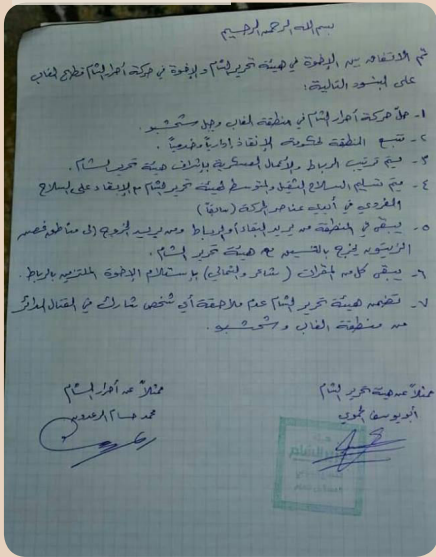 بسم الله الرحمن الرحيم
تم الاتفاق بين الإخوة في هيئة تحرير الشام والإخوة في حركة أحرار الشام قطاع الغاب
على البنود التالية:
١- حلّ حركة أحرار الشام في منطقة الغاب وجبل شحشبو.
٢- تتبع المنطقة لحكومة الإنقاذ إدارياً وخدمياً.
٣- يتم ترتيب الرباط والأعمال العسكرية بإشراف هيئة تحرير الشام.
٤- يتم تسليم السلاح الثقيل والمتوسط لهيئة تحرير الشام مع الإبقاء على السلاح
الفردي في أيدي عناصر الحركة (سابقاً)
٥- يبقى في المنطقة من يريد البقاء أو الرباط ومن يريد الخروج إلى مناطق غصن
الزيتون يخرج بالتنسيق مع هيئة تحرير الشام.
٦- يبقى كل من المقرات (شاغر والشمالي) باستلام الإخوة الملتزمين بالرباط.
٧- تضمن هيئة تحرير الشام عدم ملاحقة أي شخص شارك في القتال الدائر
من منطقة الغاب وشحشبو.
ممثلاً عن هيئة تحرير الشام
أبو يوسف الحموي
ممثلاً عن أحرار الشام
محمد حسام